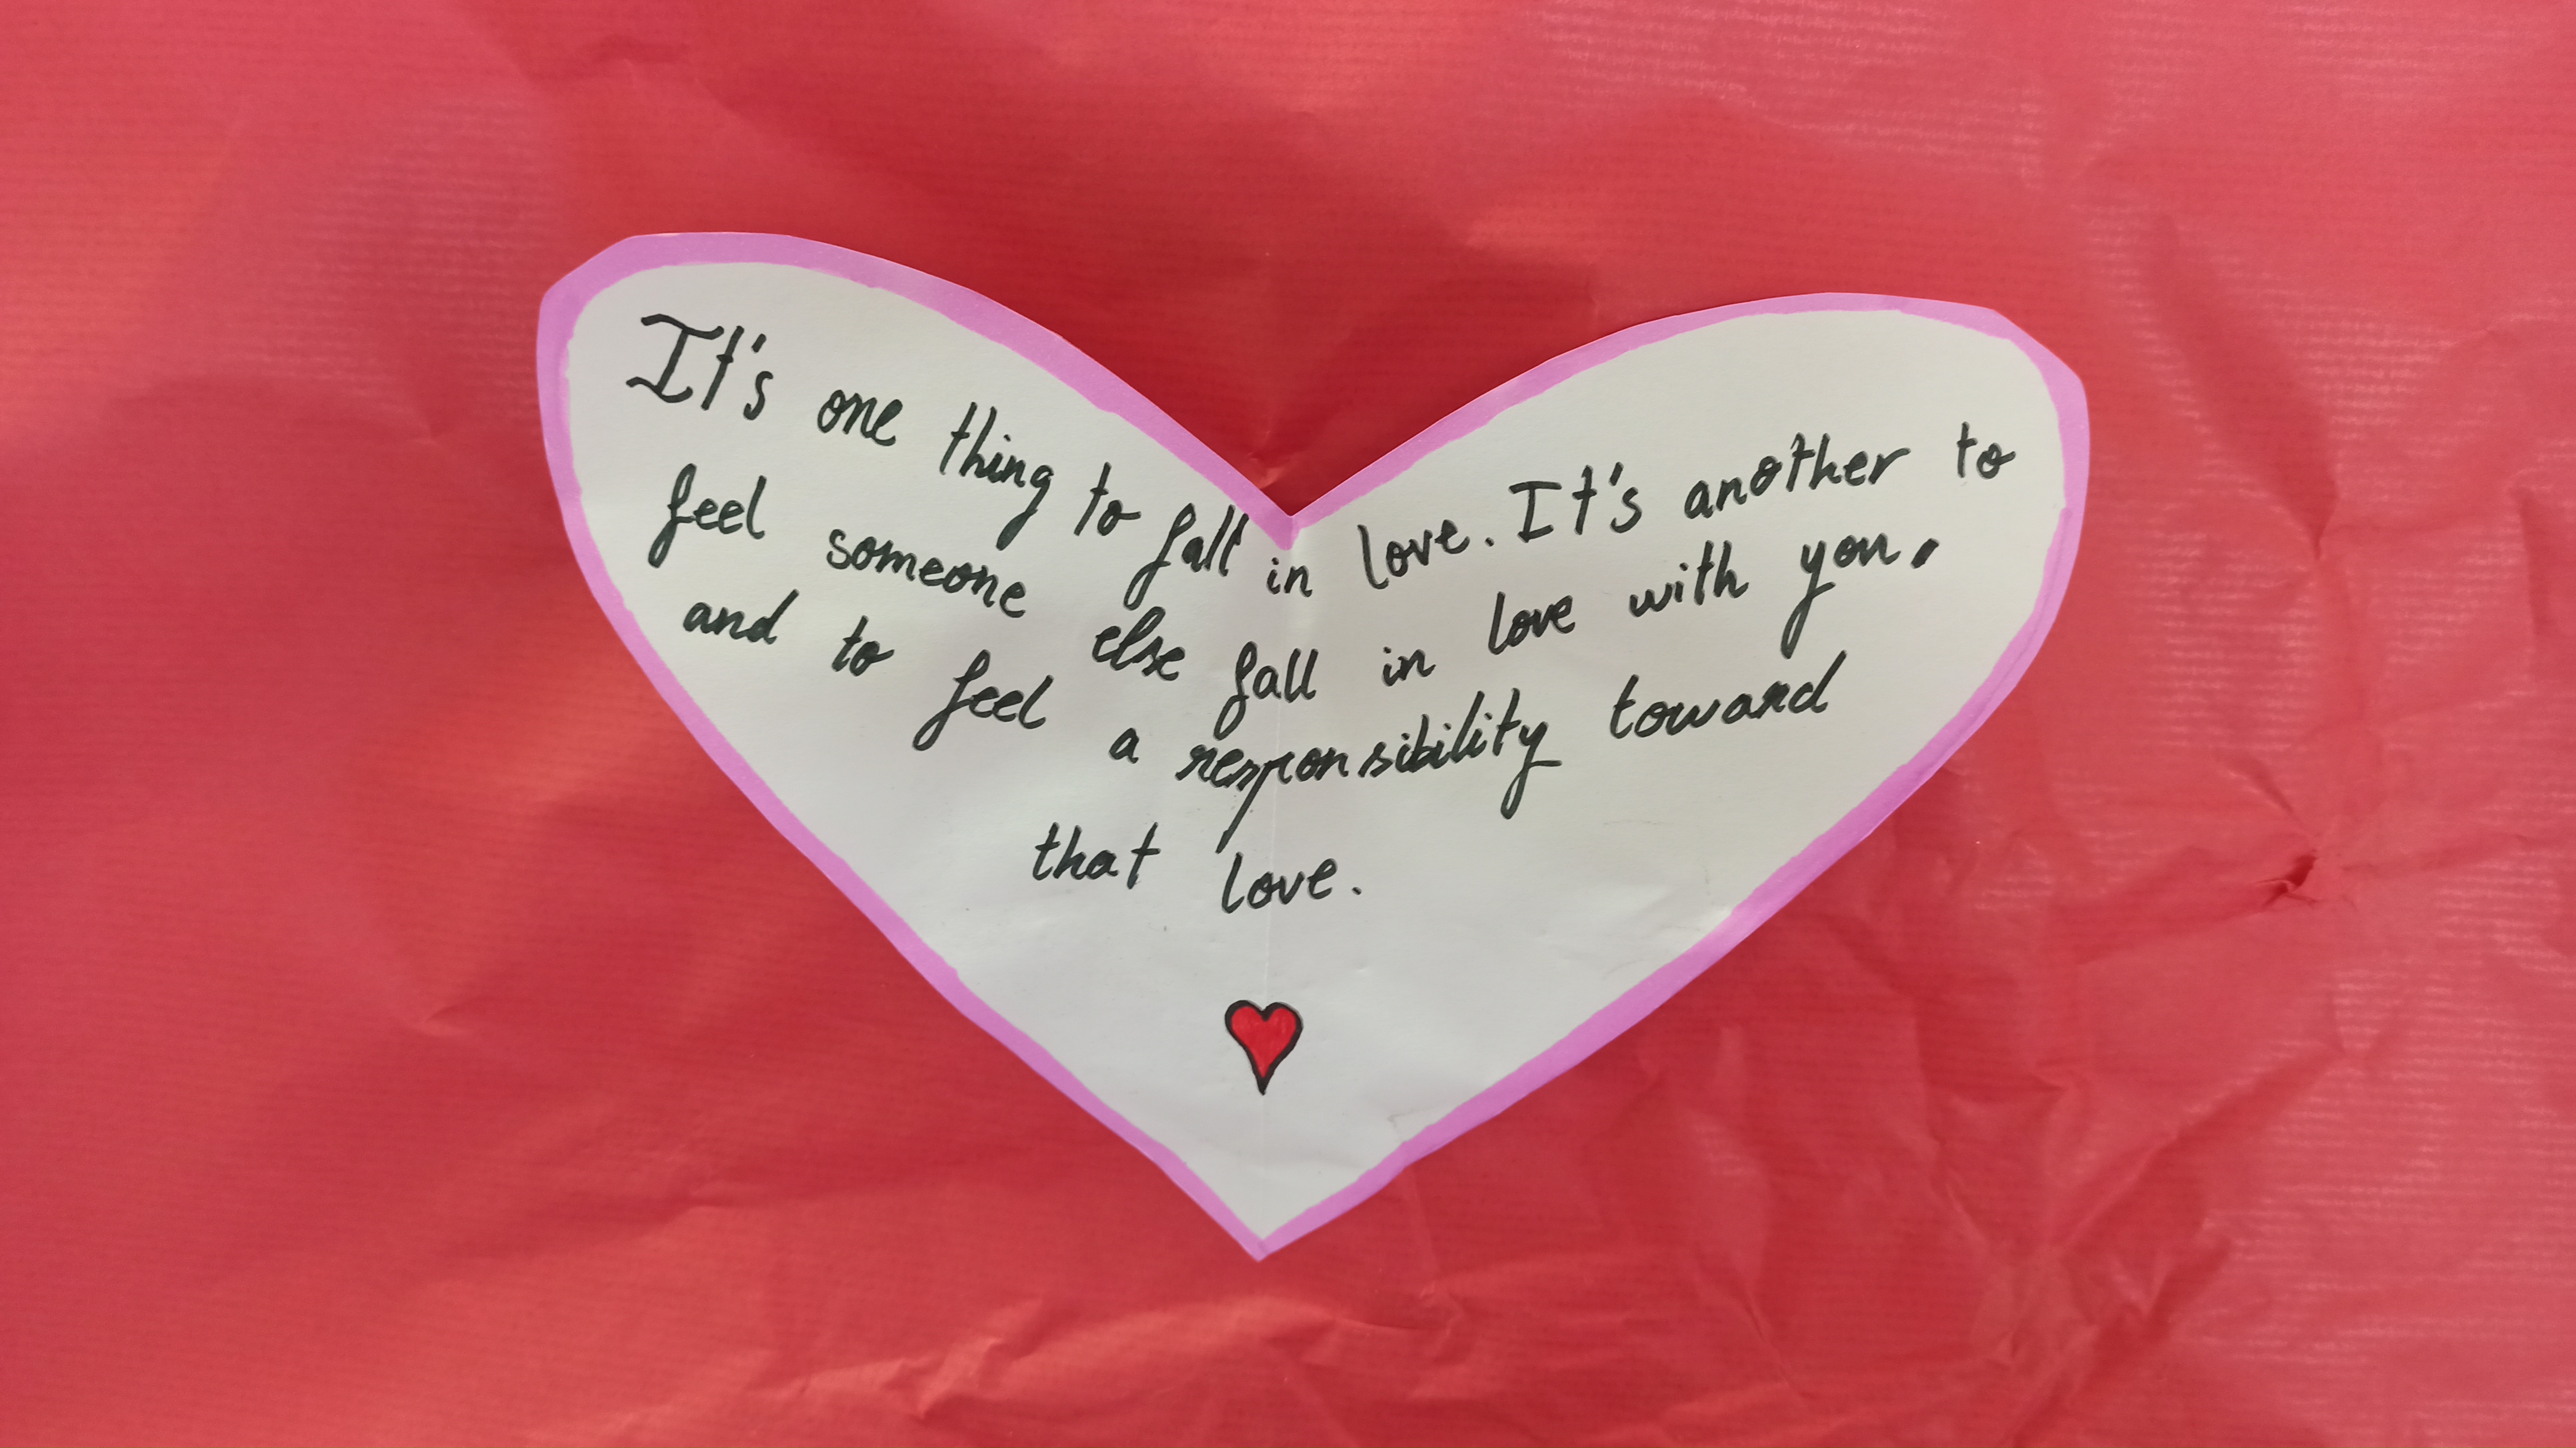 It's one thing to fall in love. It's another to
feel someone else fall in love with you,
and to feel a responsibility toward
that love.